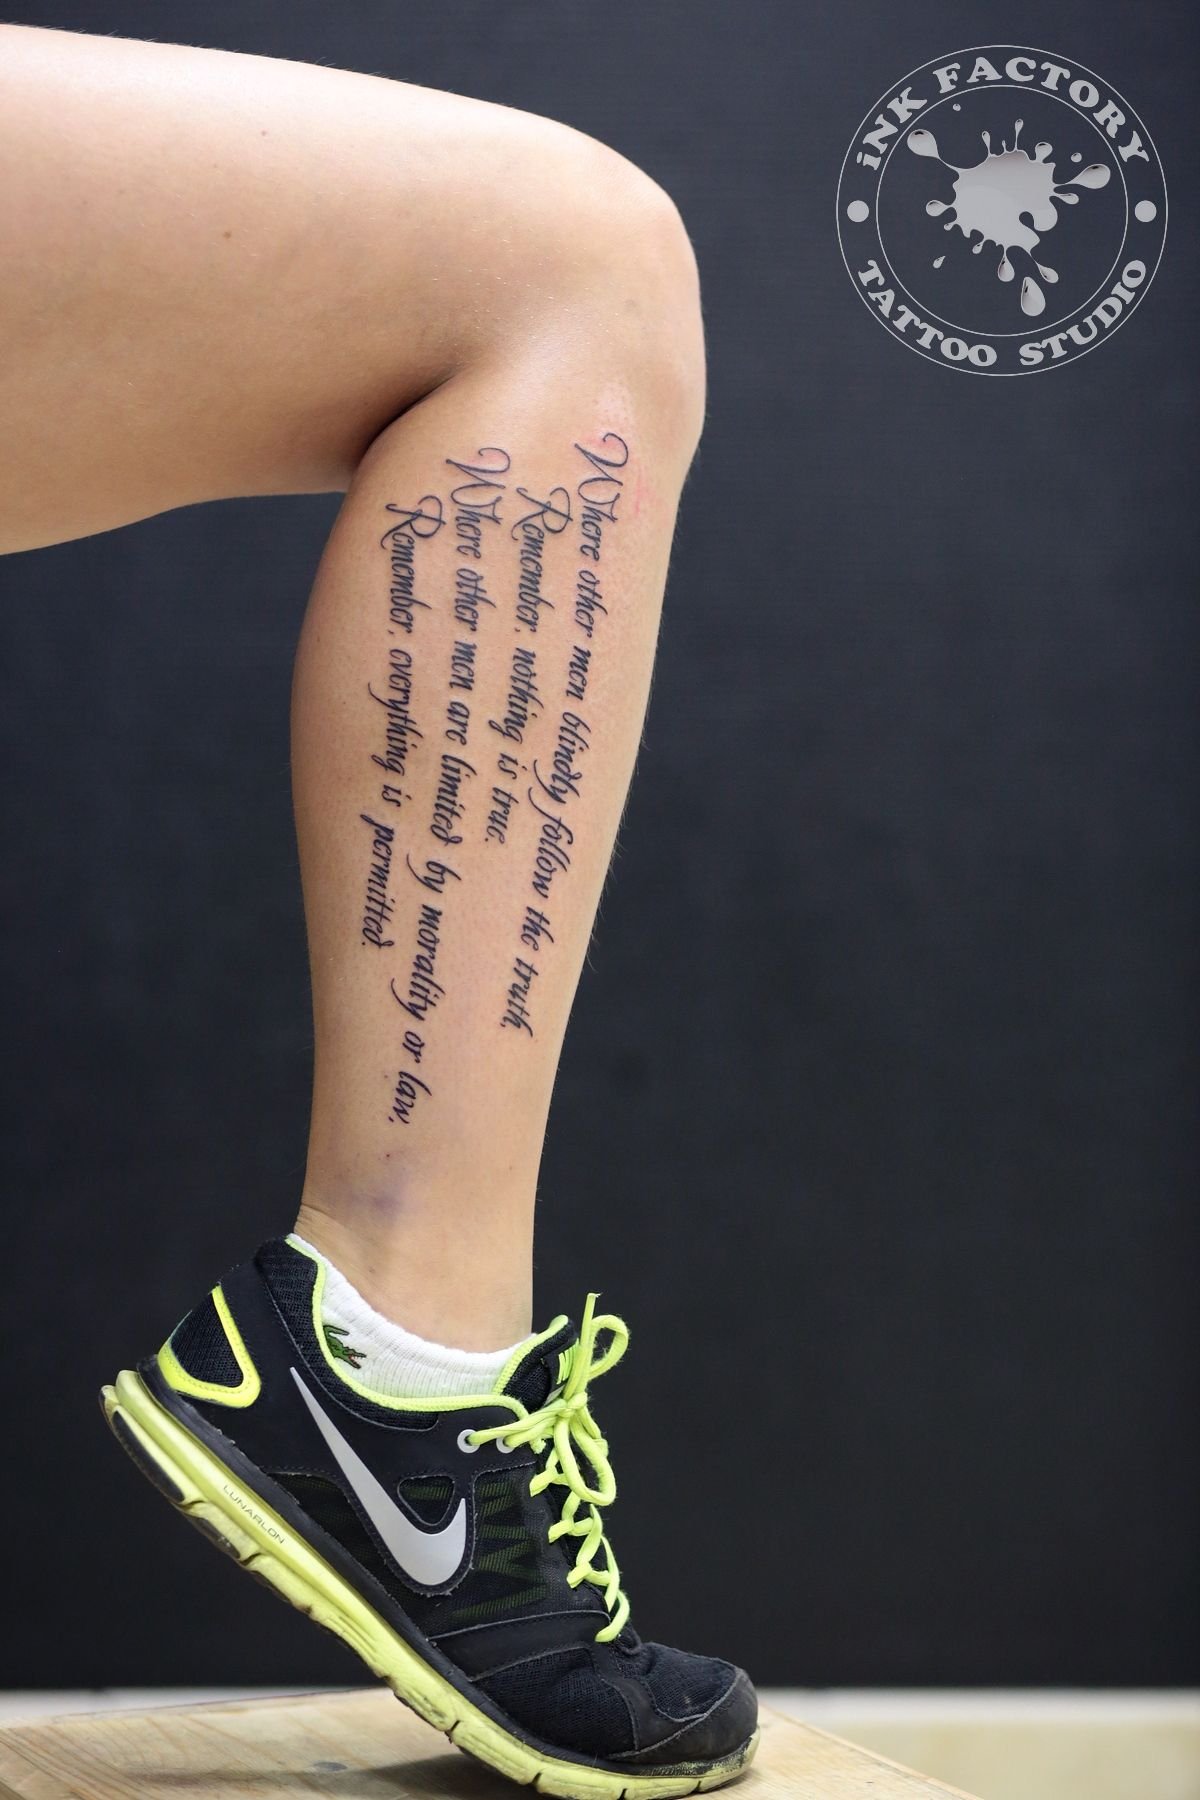 iNK FACTORY
TATTOO STUDIO
Where other men blindly follow the truth,
Remember, nothing is true.
Where other men are limited by morality or law,
Remember, everything is permitted.
LUNARLON